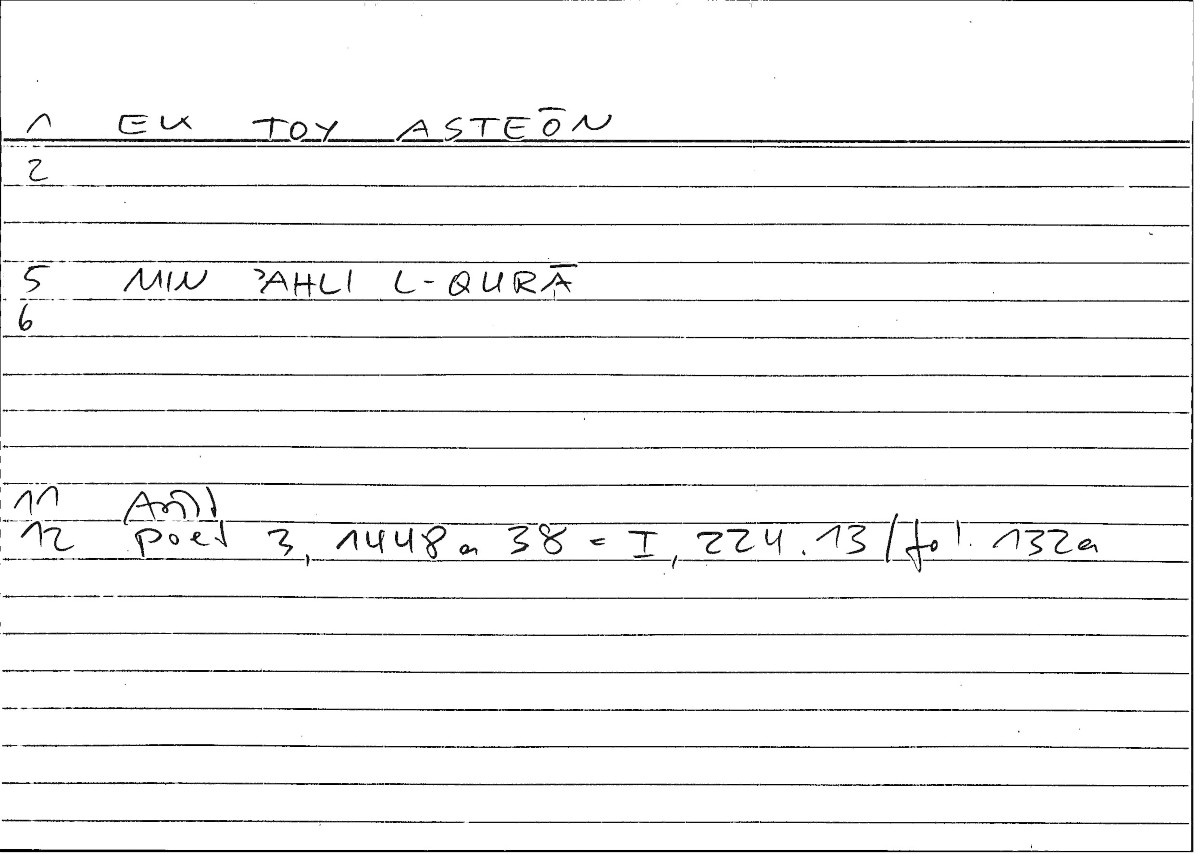 1 EK TOY ASTEŌN
2
5 MIN ʾAHLI L-QURĀ
6
11 Arist
12 Poet 3, 1448a 38 = I, 224.13/fol. 132a